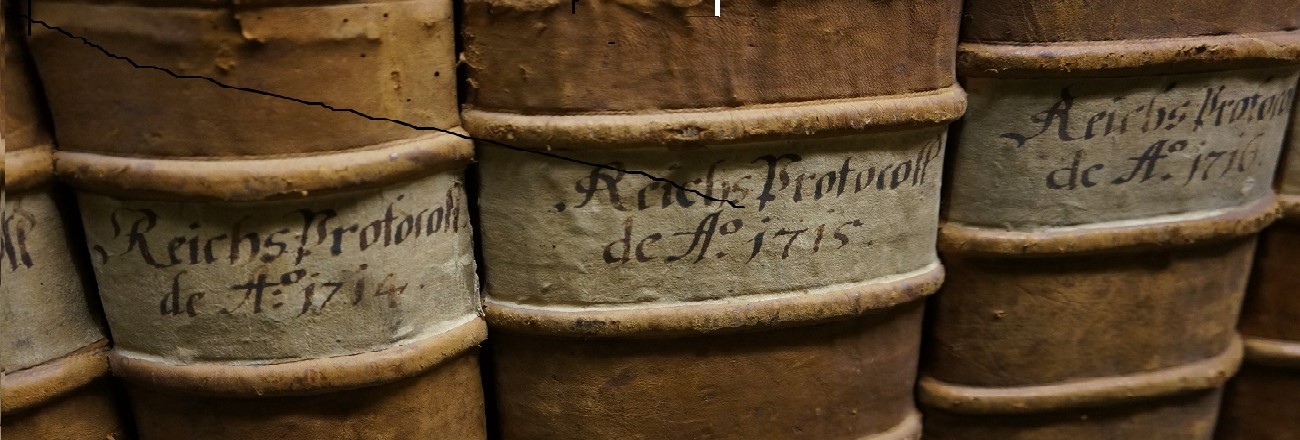 Reichs Protocoll
de Aº. 1714.
Reichs Protocoll
de Aº. 1715.
Reichs Protoco
de Aº. 1716.